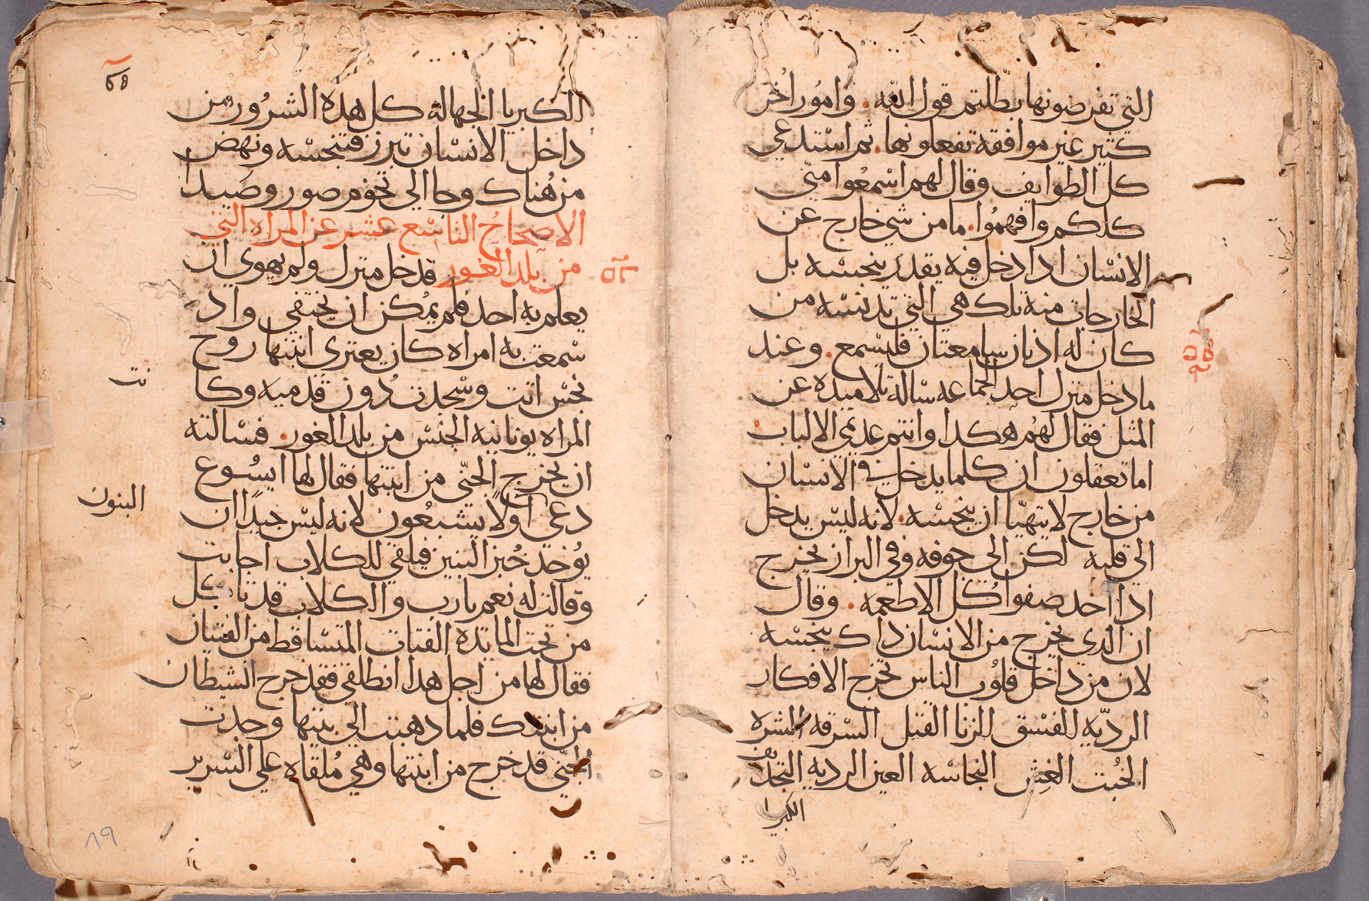 التي تفرضونها بطلتم قول الله. وامور اخر
كتير غير موافقه تفعلونها. ثم استدعي
كل الطوايف وقال لهم اسمعوا مني
كلكم وافهموا. ما من شي خارج عن
الانسان ادا دخل فيه يقدر ينجسه بل
الخارجات منه تلك هي التي تدنسه من
كان له ادنان سامعتان فليسمع. وعند
ما دخل منزل احد الجماعه سالته تلاميده عن
المثل فقال لهم هكدا وانتم عديمي الالباب
اما تعقلون ان كلما يدخل في الانسان
من خارج لا يتهيا ان ينجسه. لانه ليس يدخل
الي قلبه لكن الي جوفه وفي البراز يخرج
ادا احد صفوا كل الاطعمه. وقال
ان الدي يخرج من الانسان داك ينجسه
لان من داخل قلوب الناس تخرج الافكار
الرديه الفسق الزنا القتل السرقه الشره
الخبت الغش النجاسه العين الرديه التجديف
الكبريا
الكبريا الجهاله كل هده الشرور من
داخل الانسان تبرز فتنجسه ونهض
من هناك وجا الي تخوم صور وصيدا
الاصحاح التاسع عشر عن المراه التي
من بلد الغور قدخل منزل ولم يهوي ان
يعلم به احد فلم يمكن ان يختفي واد
سمعت به امراه كان يعتري ابنتها روح
نجس اتت وسجدت دون قدميه وكا
نت
المراه يونانيه الجنس من بلد الغور. فسالته
ان يخرج الجني من ابنتها فقال لها ايسوع
دعي اولا يشبعون لانه ليس جيدا ان
البنون
يوخد خبز البنين فيلقي للكلاب اجابت
وقالت له نعم يارب والكلاب قد تاكل
من تحت المايده الفتات المتساقط من الفتيان
فقال لها من اجل هدا انطلقي فقد خرج الشيطان
من ابنتك فلما دهبت الي بيتها وجدت
الجني قد خرج من ابنتها وهي ملقاه علي السرير
٨٩